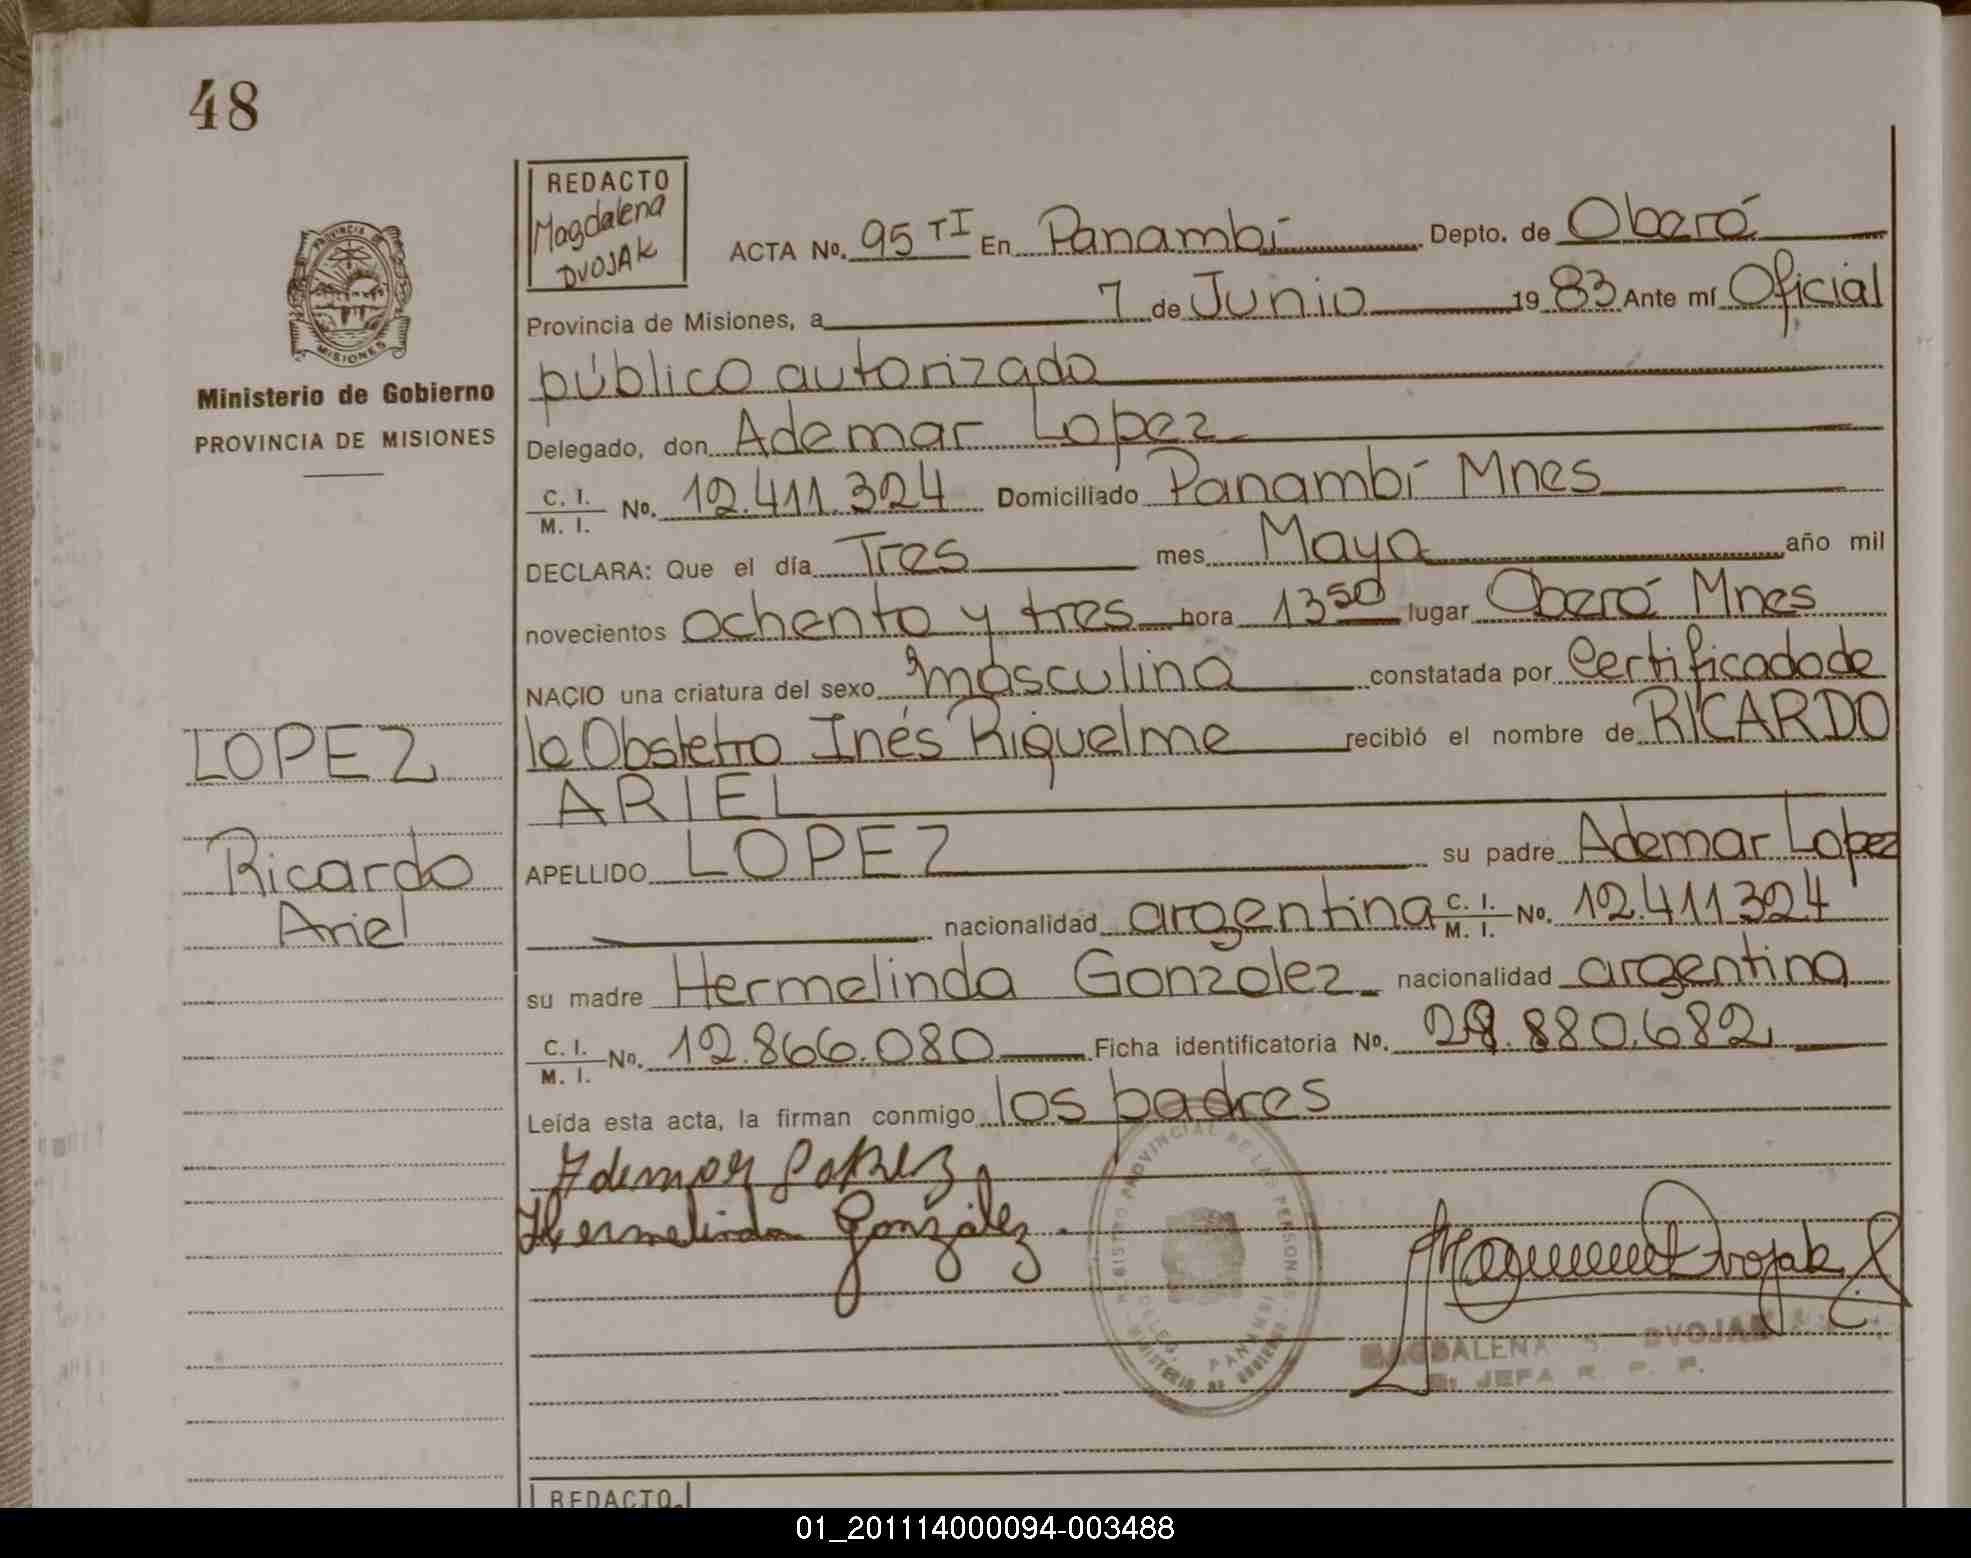 48
REDACTO
Magdalena
DVOJAK
ACTA No. 95 TI En Panambí Depto. de Oberá
Provincia de Misiones, a 7 de Junio 1983 Ante mí Oficial
público autorizado
PROVINCIA DE
MISIONES
Ministerio de Gobierno
PROVINCIA DE MISIONES
Delegado, don Ademar Lopez
C. I.
M. I. No. 12.411.324 Domiciliado Panambí Mnes
DECLARA: Que el día Tres mes Mayo año mil
novecientos ochenta y tres hora 13 50 lugar Oberá Mnes
NACIO una criatura del sexo masculino constatada por Certificado de
la Obstetra Inés Riquelme recibió el nombre de RICARDO
ARIEL
LOPEZ
Ricardo
Ariel
APELLIDO LOPEZ su padre Ademar Lopez
nacionalidad argentina C. I.
M. I. No. 12.411324
su madre Hermelinda Gonzalez nacionalidad argentina
C. I.
M. I. No. 12.866.080 Ficha identificatoria No. 29.880.682
Leída esta acta, la firman conmigo los padres
Ademar Lopez
Hermelinda González.
Dvojak
MAGDALENA S. DVOJAK
JEFA R. P. P.
REDACTO
01_201114000094-003488